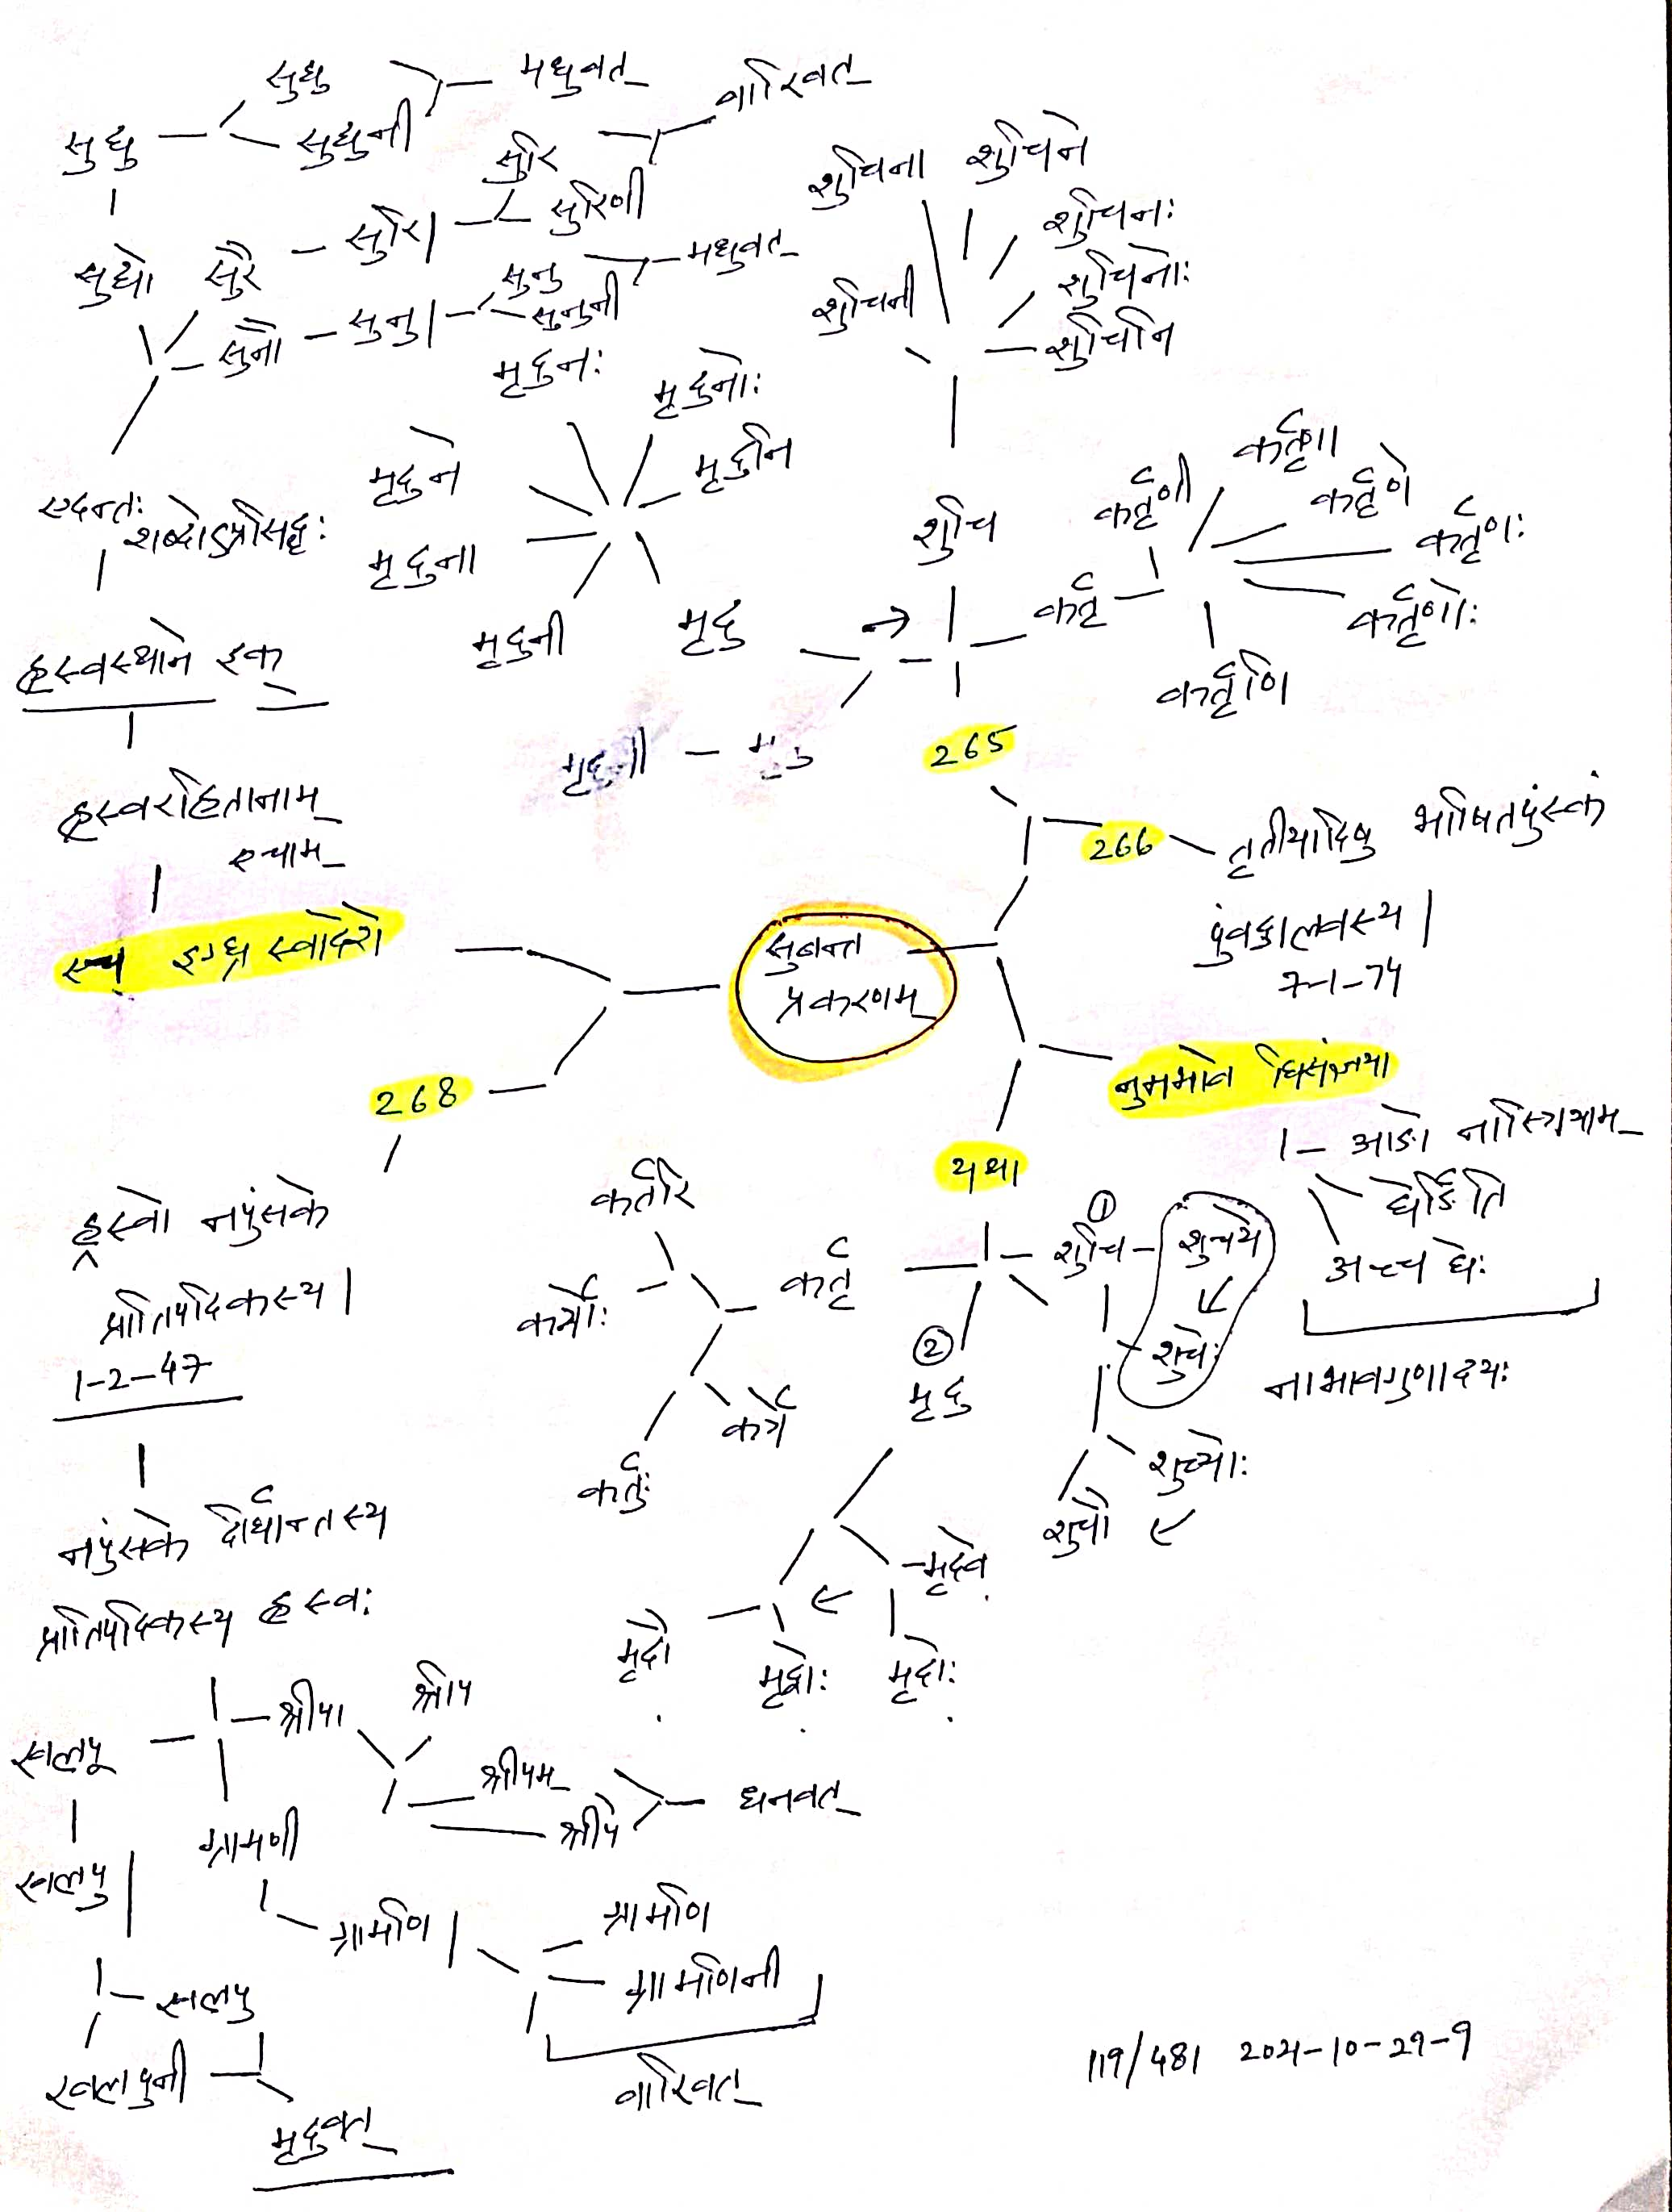 सुद्यु
मधुवत्
वारिवत्
सुद्यु
सुद्युनी
सुरि
सुरिणी
शुचिना
शुचिने
शुचिनः
शुचिनोः
शुचिनि
शुचिनी
सुद्यो
सुरै
सुरि।
सुनौ
सुनु।
सुनु
सुनुनी
मधुवत्
मृदुनः
मृदुनोः
मृदुनि
मृदुने
मृदुना
मृदुनी
मृदु
शुचि
कर्तृणी
कर्तृणा
कर्तृणे
कर्तृणः
कर्तृणोः
कर्तृणि
कर्तृ
एदन्तः
शब्दोऽप्रसिद्धः
ह्रस्वस्थाने इक्
मृदुनी
265
ह्रस्वरहितानाम्
एचाम्
266
तृतीयादिषु भाषितपुंस्कं
पुंवद्गालवस्य।
7-1-74
एच इग्घ्रस्वादेशे
सुबन्त
प्रकरणम्
नुमभावे घिसंज्ञया
268
यथा
1- आङो नास्त्रियाम्
घेर्ङिति
अच्च घेः
नाभावगुणादयः
ह्रस्वो नपुंसके
प्रातिपदिकस्य।
1-2-47
कर्तरि
कर्त्रोः
कर्तृ
कर्त्रे
कर्तुः
①
शुचि
शुचये
शुचेः
शुच्योः
शुचौ
②
मृदु
मृदवे
मृदौ
मृद्वोः
मृदोः
नपुंसके दीर्घान्तस्य
प्रातिपदिकस्य ह्रस्वः
खलपू
श्रीपा
श्रीप
श्रीपम्
श्रीपे
धनवत्
खलपु
ग्रामणी
ग्रामणि।
ग्रामणि
ग्रामणिनी
वारिवत्
खलपु
खलपुनी
मृदुवत्
119/481 2021-10-29-9